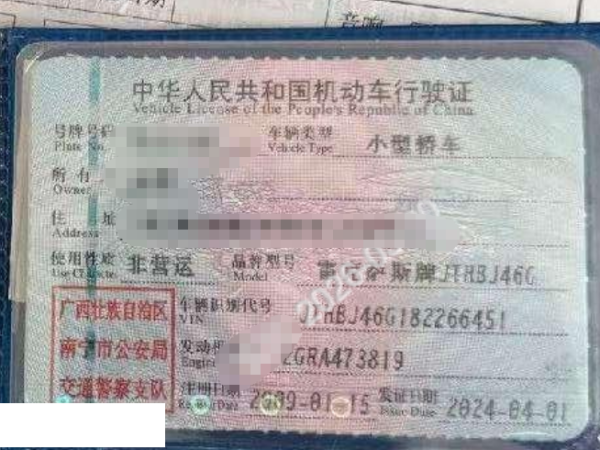 音响
中华人民共和国机动车行驶证
Vehicle License of the People's Republic of China
号牌号码 车辆类型 小型轿车
Plate No. Vehicle Type
所有
Owner
住 址
Address
使用性质 非营运 品牌型号 雷克萨斯牌JTHBJ46G
Use Character Model
广西壮族自治区 车辆识别代号 JTHBJ46G182266451
南宁市公安局 VIN
交通警察支队 发动 2GRA473819
Engine
注册日期 2009-01-15 发证日期 2024-04-01
Register Date Issue Date